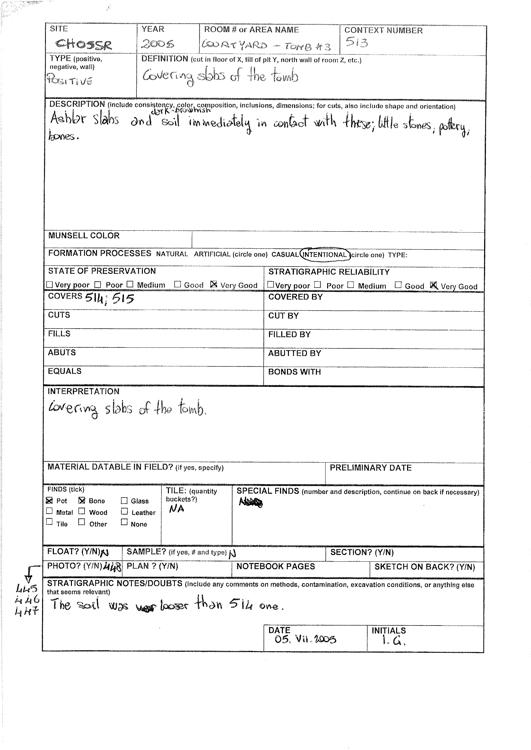 SITE YEAR ROOM # or AREA NAME CONTEXT NUMBER
CHOSSR 2005 COURTYARD - TOMB #3 513
TYPE (positive, negative, wall) DEFINITION (cut in floor of X, fill of pit Y, north wall of room Z, etc.)
POSITIVE Covering slabs of the tomb
DESCRIPTION (include consistency, color, composition, inclusions, dimensions; for cuts, also include shape and orientation)
dark-brownish
Ashlar slabs and soil immediately in contact with these; little stones, pottery,
bones.
MUNSELL COLOR
FORMATION PROCESSES NATURAL ARTIFICIAL (circle one) CASUAL INTENTIONAL (circle one) TYPE:
STATE OF PRESERVATION STRATIGRAPHIC RELIABILITY
☐ Very poor ☐ Poor ☐ Medium ☐ Good ☒ Very Good ☐ Very poor ☐ Poor ☐ Medium ☐ Good ☒ Very Good
COVERS 514; 515 COVERED BY
CUTS CUT BY
FILLS FILLED BY
ABUTS ABUTTED BY
EQUALS BONDS WITH
INTERPRETATION
Covering slabs of the tomb.
MATERIAL DATABLE IN FIELD? (if yes, specify) PRELIMINARY DATE
FINDS (tick) TILE: (quantity buckets?) SPECIAL FINDS (number and description, continue on back if necessary)
☒ Pot ☒ Bone ☐ Glass NA
☐ Metal ☐ Wood ☐ Leather
☐ Tile ☐ Other ☐ None
FLOAT? (Y/N) N SAMPLE? (if yes, # and type) N SECTION? (Y/N)
PHOTO? (Y/N) 448 PLAN ? (Y/N) NOTEBOOK PAGES SKETCH ON BACK? (Y/N)
445
446
447
STRATIGRAPHIC NOTES/DOUBTS (include any comments on methods, contamination, excavation conditions, or anything else
that seems relevant)
The soil was looser than 514 one.
DATE INITIALS
05. VII. 2005 I. G.